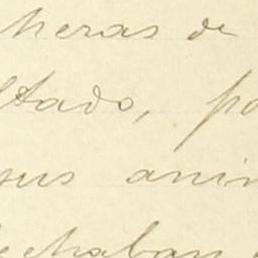 heras de
ltado, po
sus anim
echaban